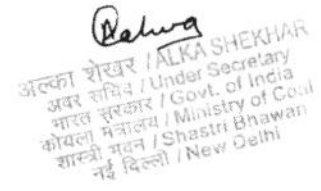 अलका शेखर / ALKA SHEKHAR
अवर सचिव / Under Secretary
भारत सरकार / Govt. of India
कोयला मंत्रालय / Ministry of Coal
शास्त्री भवन / Shastri Bhawan
नई दिल्ली / New Delhi